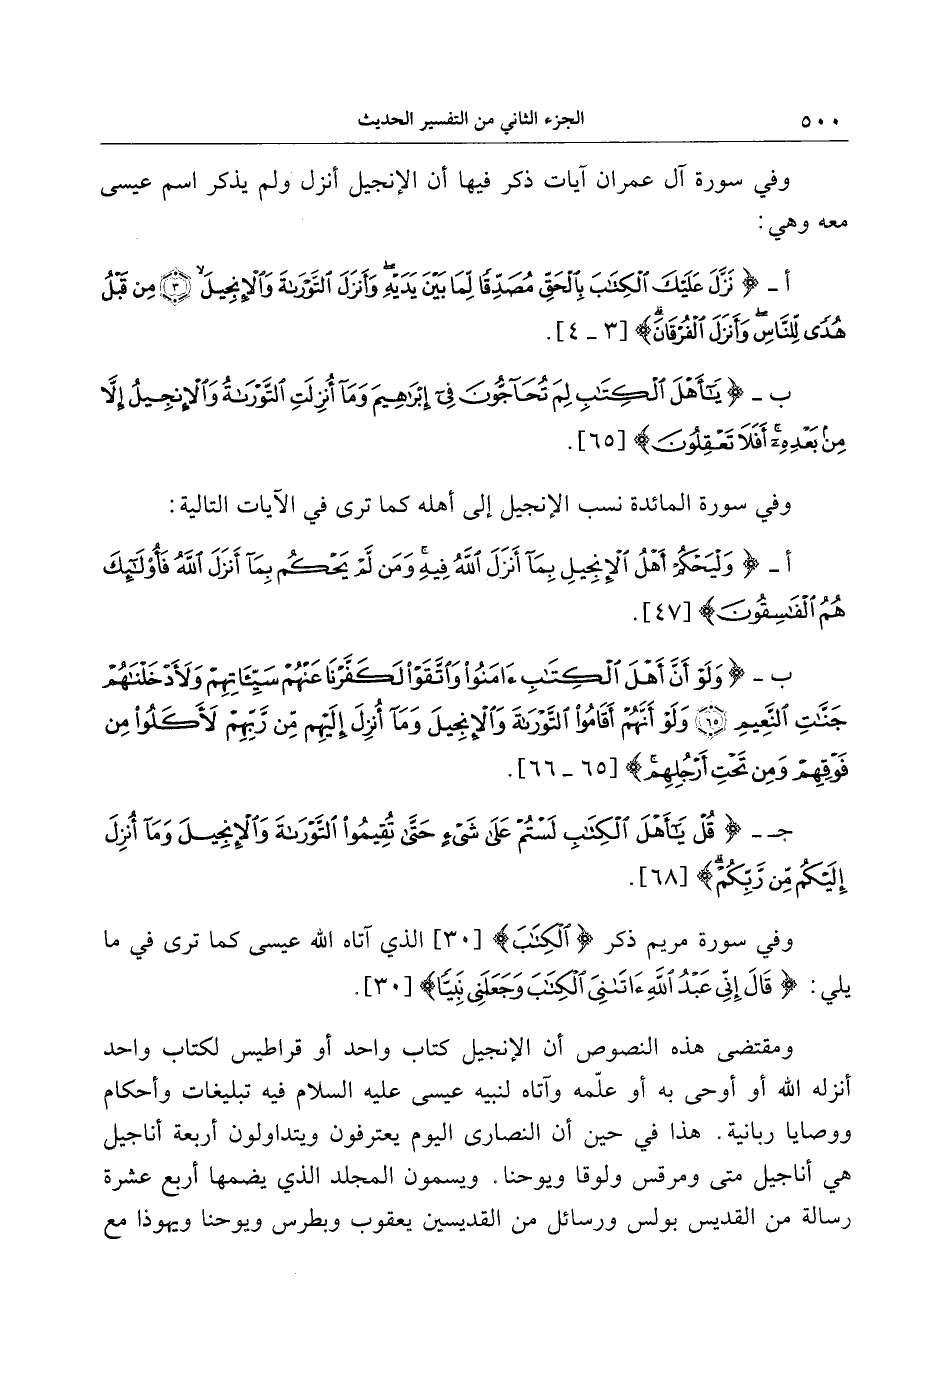 ٥٠٠ الجزء الثاني من التفسير الحديث
وفي سورة آل عمران آيات ذكر فيها أن الإنجيل أنزل ولم يذكر اسم عيسى
معه وهي:
أ ـ ﴿ نَزَّلَ عَلَيْكَ ٱلْكِتَٰبَ بِٱلْحَقِّ مُصَدِّقًا لِّمَا بَيْنَ يَدَيْهِۖ وَأَنزَلَ ٱلتَّوْرَىٰةَ وَٱلْإِنجِيلَۙ ۝٣ مِن قَبْلُ
هُدًى لِّلنَّاسِۖ وَأَنزَلَ ٱلْفُرْقَانَۗ﴾ [٣ ـ ٤].
ب ـ ﴿ يَٰٓأَهْلَ ٱلْكِتَٰبِ لِمَ تُحَآجُّونَ فِىٓ إِبْرَٰهِيمَ وَمَآ أُنزِلَتِ ٱلتَّوْرَىٰةُ وَٱلْإِنجِيلُ إِلَّا
مِنۢ بَعْدِهِۦٓۚ أَفَلَا تَعْقِلُونَ﴾ [٦٥].
وفي سورة المائدة نسب الإنجيل إلى أهله كما ترى في الآيات التالية:
أ ـ ﴿ وَلْيَحْكُمْ أَهْلُ ٱلْإِنجِيلِ بِمَآ أَنزَلَ ٱللَّهُ فِيهِۚ وَمَن لَّمْ يَحْكُم بِمَآ أَنزَلَ ٱللَّهُ فَأُو۟لَٰٓئِكَ
هُمُ ٱلْفَٰسِقُونَ﴾ [٤٧].
ب ـ ﴿ وَلَوْ أَنَّ أَهْلَ ٱلْكِتَٰبِ ءَامَنُوا۟ وَٱتَّقَوْا۟ لَكَفَّرْنَا عَنْهُمْ سَيِّـَٔاتِهِمْ وَلَأَدْخَلْنَٰهُمْ
جَنَّٰتِ ٱلنَّعِيمِ ۝٦٥ وَلَوْ أَنَّهُمْ أَقَامُوا۟ ٱلتَّوْرَىٰةَ وَٱلْإِنجِيلَ وَمَآ أُنزِلَ إِلَيْهِم مِّن رَّبِّهِمْ لَأَكَلُوا۟ مِن
فَوْقِهِمْ وَمِن تَحْتِ أَرْجُلِهِمۚ﴾ [٦٥ ـ ٦٦].
جـ ـ ﴿ قُلْ يَٰٓأَهْلَ ٱلْكِتَٰبِ لَسْتُمْ عَلَىٰ شَىْءٍ حَتَّىٰ تُقِيمُوا۟ ٱلتَّوْرَىٰةَ وَٱلْإِنجِيلَ وَمَآ أُنزِلَ
إِلَيْكُم مِّن رَّبِّكُمْۗ﴾ [٦٨].
وفي سورة مريم ذكر ﴿ ٱلْكِتَٰبَ﴾ [٣٠] الذي آتاه الله عيسى كما ترى في ما
يلي: ﴿ قَالَ إِنِّى عَبْدُ ٱللَّهِ ءَاتَىٰنِىَ ٱلْكِتَٰبَ وَجَعَلَنِى نَبِيًّا﴾ [٣٠].
ومقتضى هذه النصوص أن الإنجيل كتاب واحد أو قراطيس لكتاب واحد
أنزله الله أو أوحى به أو علّمه وآتاه لنبيه عيسى عليه السلام فيه تبليغات وأحكام
ووصايا ربانية. هذا في حين أن النصارى اليوم يعترفون ويتداولون أربعة أناجيل
هي أناجيل متى ومرقس ولوقا ويوحنا. ويسمون المجلد الذي يضمها أربع عشرة
رسالة من القديس بولس ورسائل من القديسين يعقوب وبطرس ويوحنا ويهوذا مع